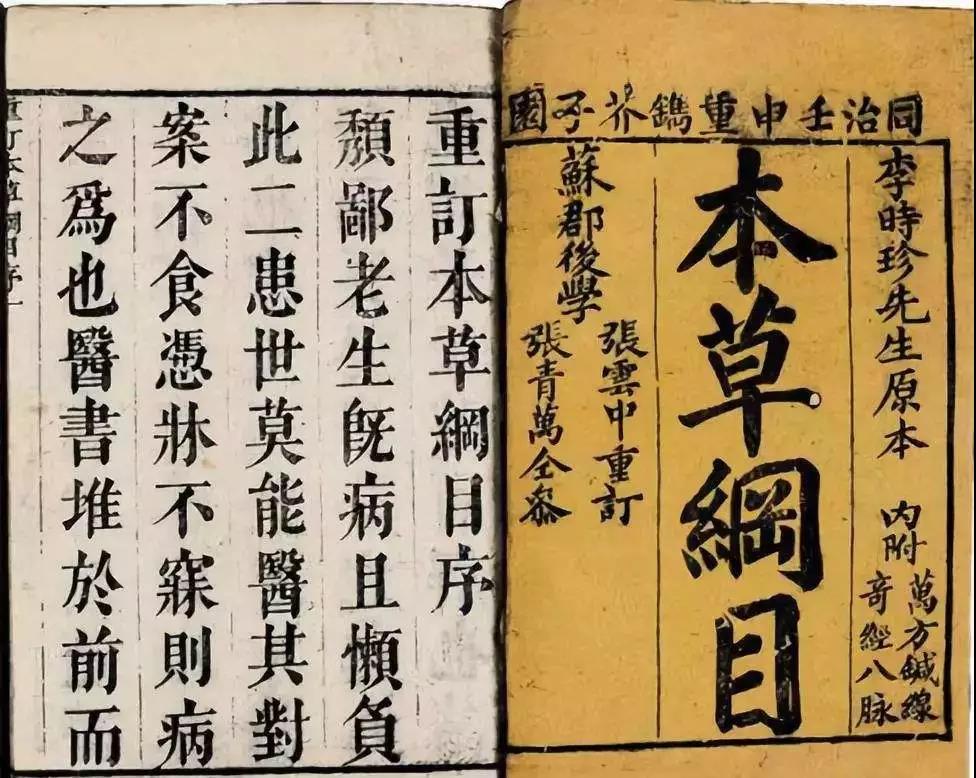 同治壬申重鐫芥子園
李時珍先生原本
內附
萬方鍼線
奇經八脉
本草綱目
蘇郡後學
張雲中重訂
張青萬仝叅
重訂本草綱目序
頹鄙老生旣病且懶負
此二患世莫能醫其對
案不食憑牀不寐則病
之爲也醫書堆於前而
重訂本草綱目序一